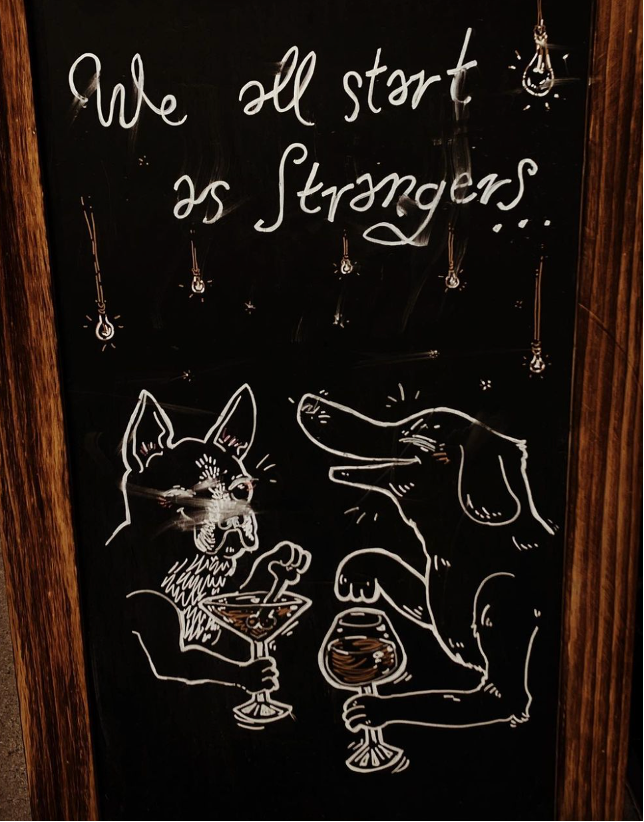 We all start
as Strangers...